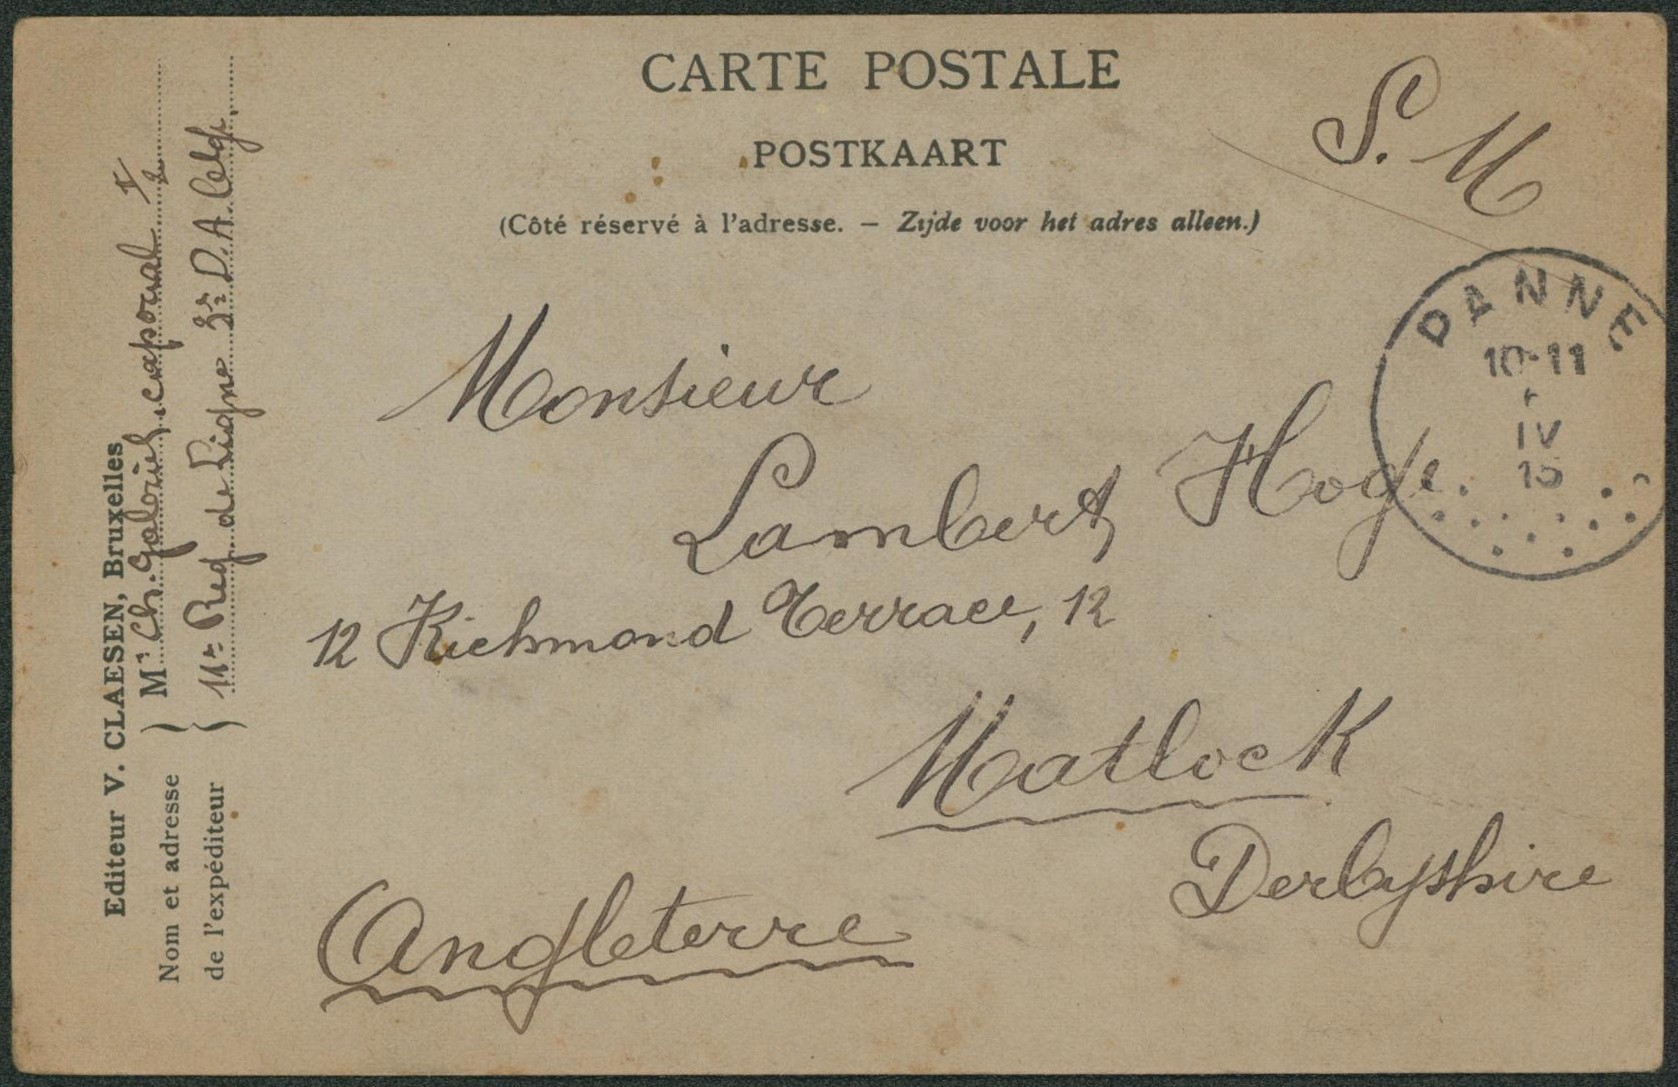 CARTE POSTALE
POSTKAART
(Côté réservé à l'adresse. — Zijde voor het adres alleen.)
S. M
PANNE
10-11
IV
15
Monsieur
Lambert Hoge.
12 Richmond Terrace, 12
Matlock
Derbyshire
Angleterre
Editeur V. CLAESEN, Bruxelles
Nom et adresse
de l'expéditeur
Mr Ch. Gabriel, caporal I/2
11e Reg de Ligne 3e D. A. belge.